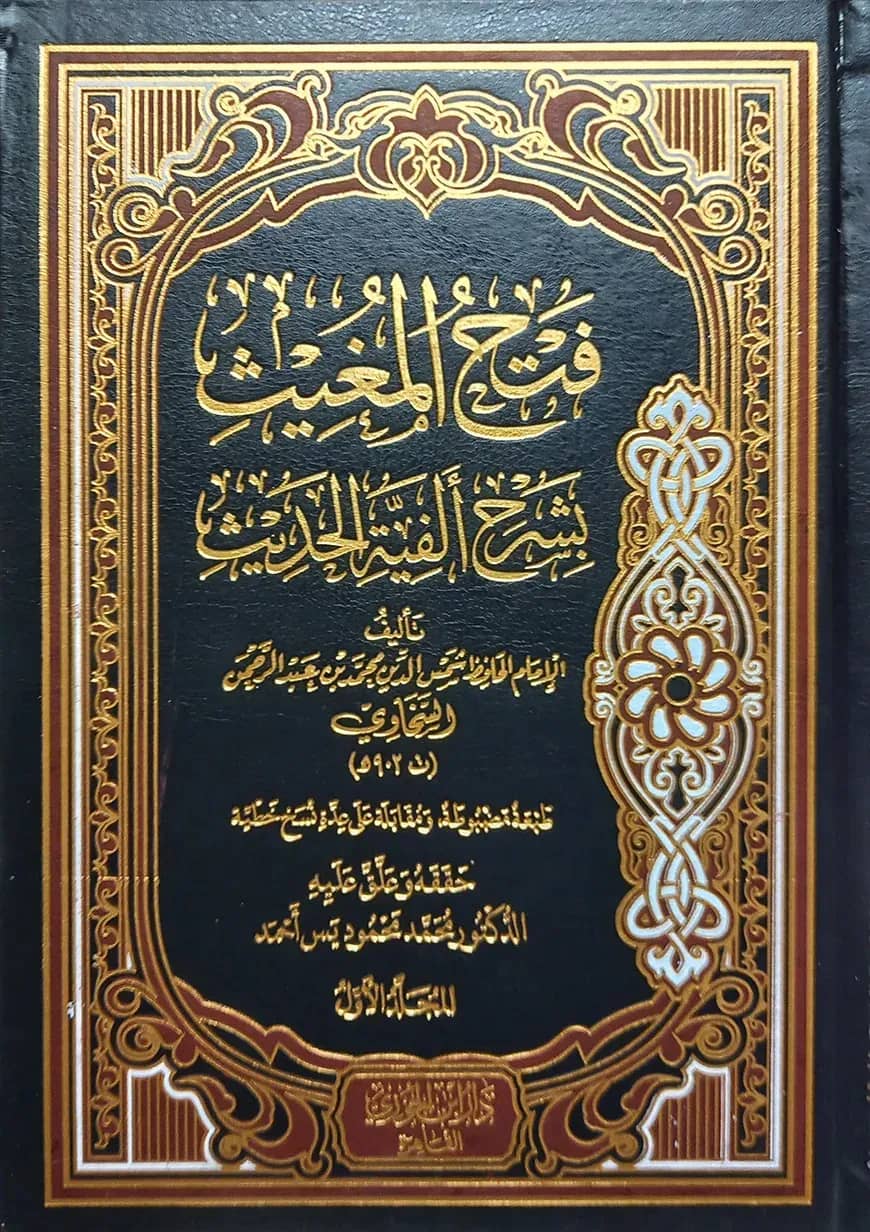 فَتْحُ المُغِيثِ
بِشَرْحِ أَلْفِيَّةِ الحَدِيثِ
تَأليفُ
الإمَام الحَافِظ شَمْسُ الدِّين مُحمَّد بْن عَبْد الرَّحْمٰن
السَّخَاوِيّ
(ت ٩٠٢ه)
طَبْعَةٌ مَضْبُوطَة، وَمُقَابلَة عَلى عِدَّةِ نُسَخ خَطِّيَّة
حَقَّقَهُ وَعَلَّقَ عَلَيهِ
الدُّكْتُور مُحَمَّد مَحْمُود يٰس أَحْمَد
المُجَلَّدُ الأَوَّلُ
دَارُ ابْنِ الجَوْزِيِّ
القَاهِرَة